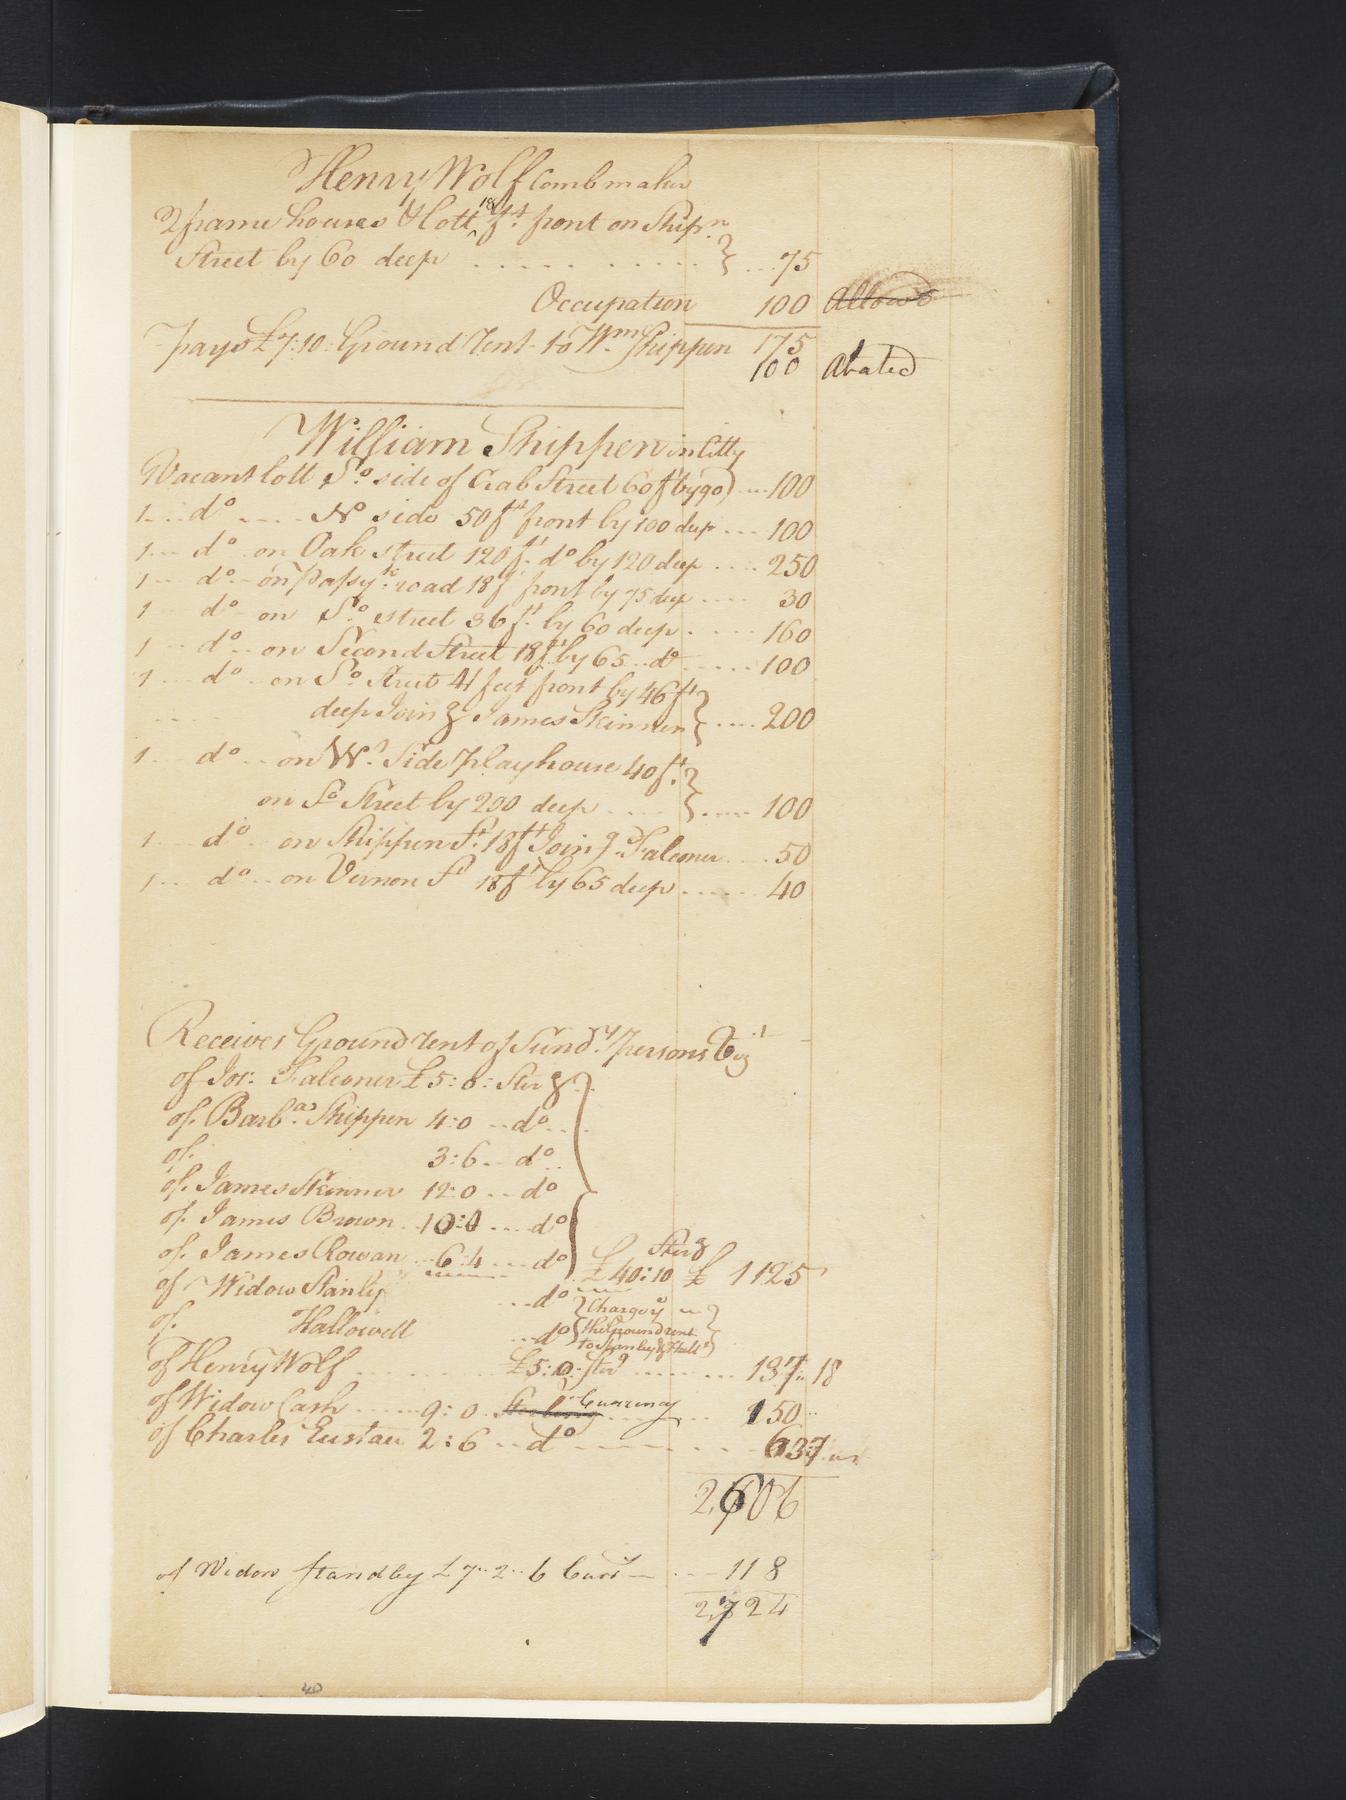 Henry Wolf Combmaker
2 frame houses & lott 18 ft front on Ship.n
Street by 60 deep ..... 75
Occupation 100 Allowd
pays £7:10: Ground Rent to Wm Shippen 175
100 Abated
William Shippen in Citty
Vacant lott So side of Crab Street 60 ft by 90 ... 100
1 ... do .... No side 50 ft front by 100 deep ... 100
1 ... do .. on Oak street 120 ft do by 120 deep .... 250
1 ... do .. on road 18 f front by 75 deep .... 30
1 ... do - on So street 36 ft by 60 deep ..... 160
1 ... do .. on Second Street 18 ft by 65 .. do ..... 100
1 ... do .. on So Street 41 feet front by 46 ft
deep Joing James Skinner .... 200
1 ... do .. on Wt Side playhouse 40 ft
on So Street by 200 deep .... 100
1 ... do .. on Shippen St 18 ft Joing Falconer ... 50
1 ... do .. on Vernon St 18 ft by 65 deep ...... 40
Receives Ground Rent of Sundry persons Viz
of Jos: Falconer £5:0: Sterg
of Barba Shippen 4:0 .. do
of 3:6 .. do
of James Skinner 12:0 .. do
of James Brown .. 10:0 ... do
of James Rowan .. 6:4 ... do £40:10 Sterg £ 1125
of Widow Stanly ... do Chargd
of Hallowell .. do the Ground rent
to Stanley & Hall
of Henry Wolf ..... £5:0: Sterg ...... 137 .. 18
of Widow Cash ..... 9:0 Sterling Currency ..... 150
of Charles Eustace 2:6 .. do ..... 637
2,606
of Widow Standley £7..2..6 Curr ... 118
2,724
40